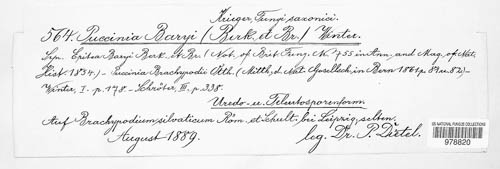 Krieger, Fungi saxonici.
564. Puccinia Baryi (Berk. et Br.) Winter.
Syn. Epitea Baryi Berk. et Br. (Not. of Brit. Fung. No 755 in Ann. and Mag. of Nat.
Hist. 1854.) — Puccinia Brachypodii Otth. (Mitth. d. Nat. Gesellsch. in Bern 1861 p. 81 u. 82) —
Winter, I. p. 178. — Schröter, III. p. 338.
Uredo- u. Teleutosporenform
Auf Brachypodium silvaticum Röm. et Schult. bei Leipzig, selten.
August 1889. leg. Dr. P. Dietel.
US NATIONAL FUNGUS COLLECTIONS
978820